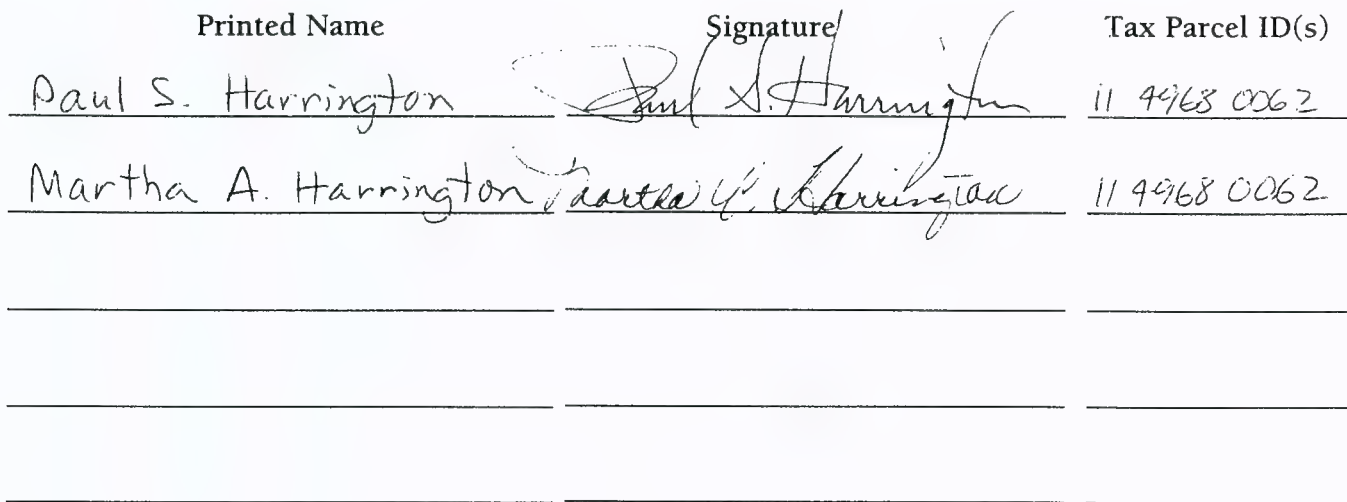 Printed Name Signature Tax Parcel ID(s)
Paul S. Harrington Paul S. Harrington 11 4968 0062
Martha A. Harrington Martha A. Harrington 11 4968 0062